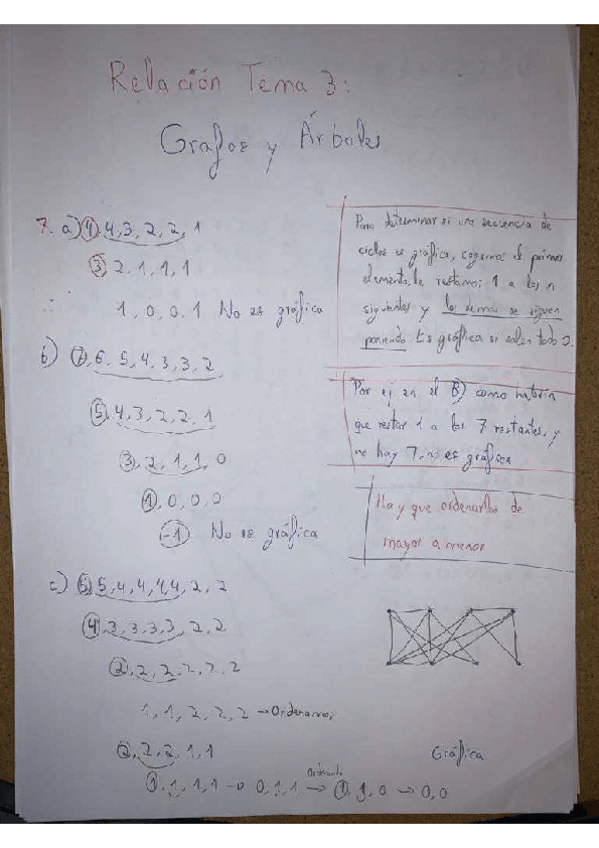 Relación Tema 3:
Grafos y Árboles
7. a) 4, 4, 3, 2, 2, 1
3, 2, 1, 1, 1
1, 0, 0, 1 No es gráfica
b) 7, 6, 5, 4, 3, 3, 2
5, 4, 3, 2, 2, 1
3, 2, 1, 1, 0
1, 0, 0, 0
-1 No es gráfica
c) 5, 4, 4, 4, 4, 2, 2
4, 3, 3, 3, 3, 2, 2
2, 2, 2, 2, 2, 2
1, 1, 2, 2, 2 → Ordenamos
2, 2, 2, 1, 1
1, 1, 1, 1 → 0, 1, 1 → 1, 1, 0 → 0, 0
Ordenando
Gráfica
Para determinar si una secuencia de
ciclos es gráfica, cogemos el primer
elemento, le restamos 1 a los n
siguientes y los demas se siguen
poniendo. Es gráfica si salen todo 0.
Por ej en el B) como habría
que restar 1 a los 7 restantes, y
no hay 7, no es gráfica
Hay que ordenarlos de
mayor a menor